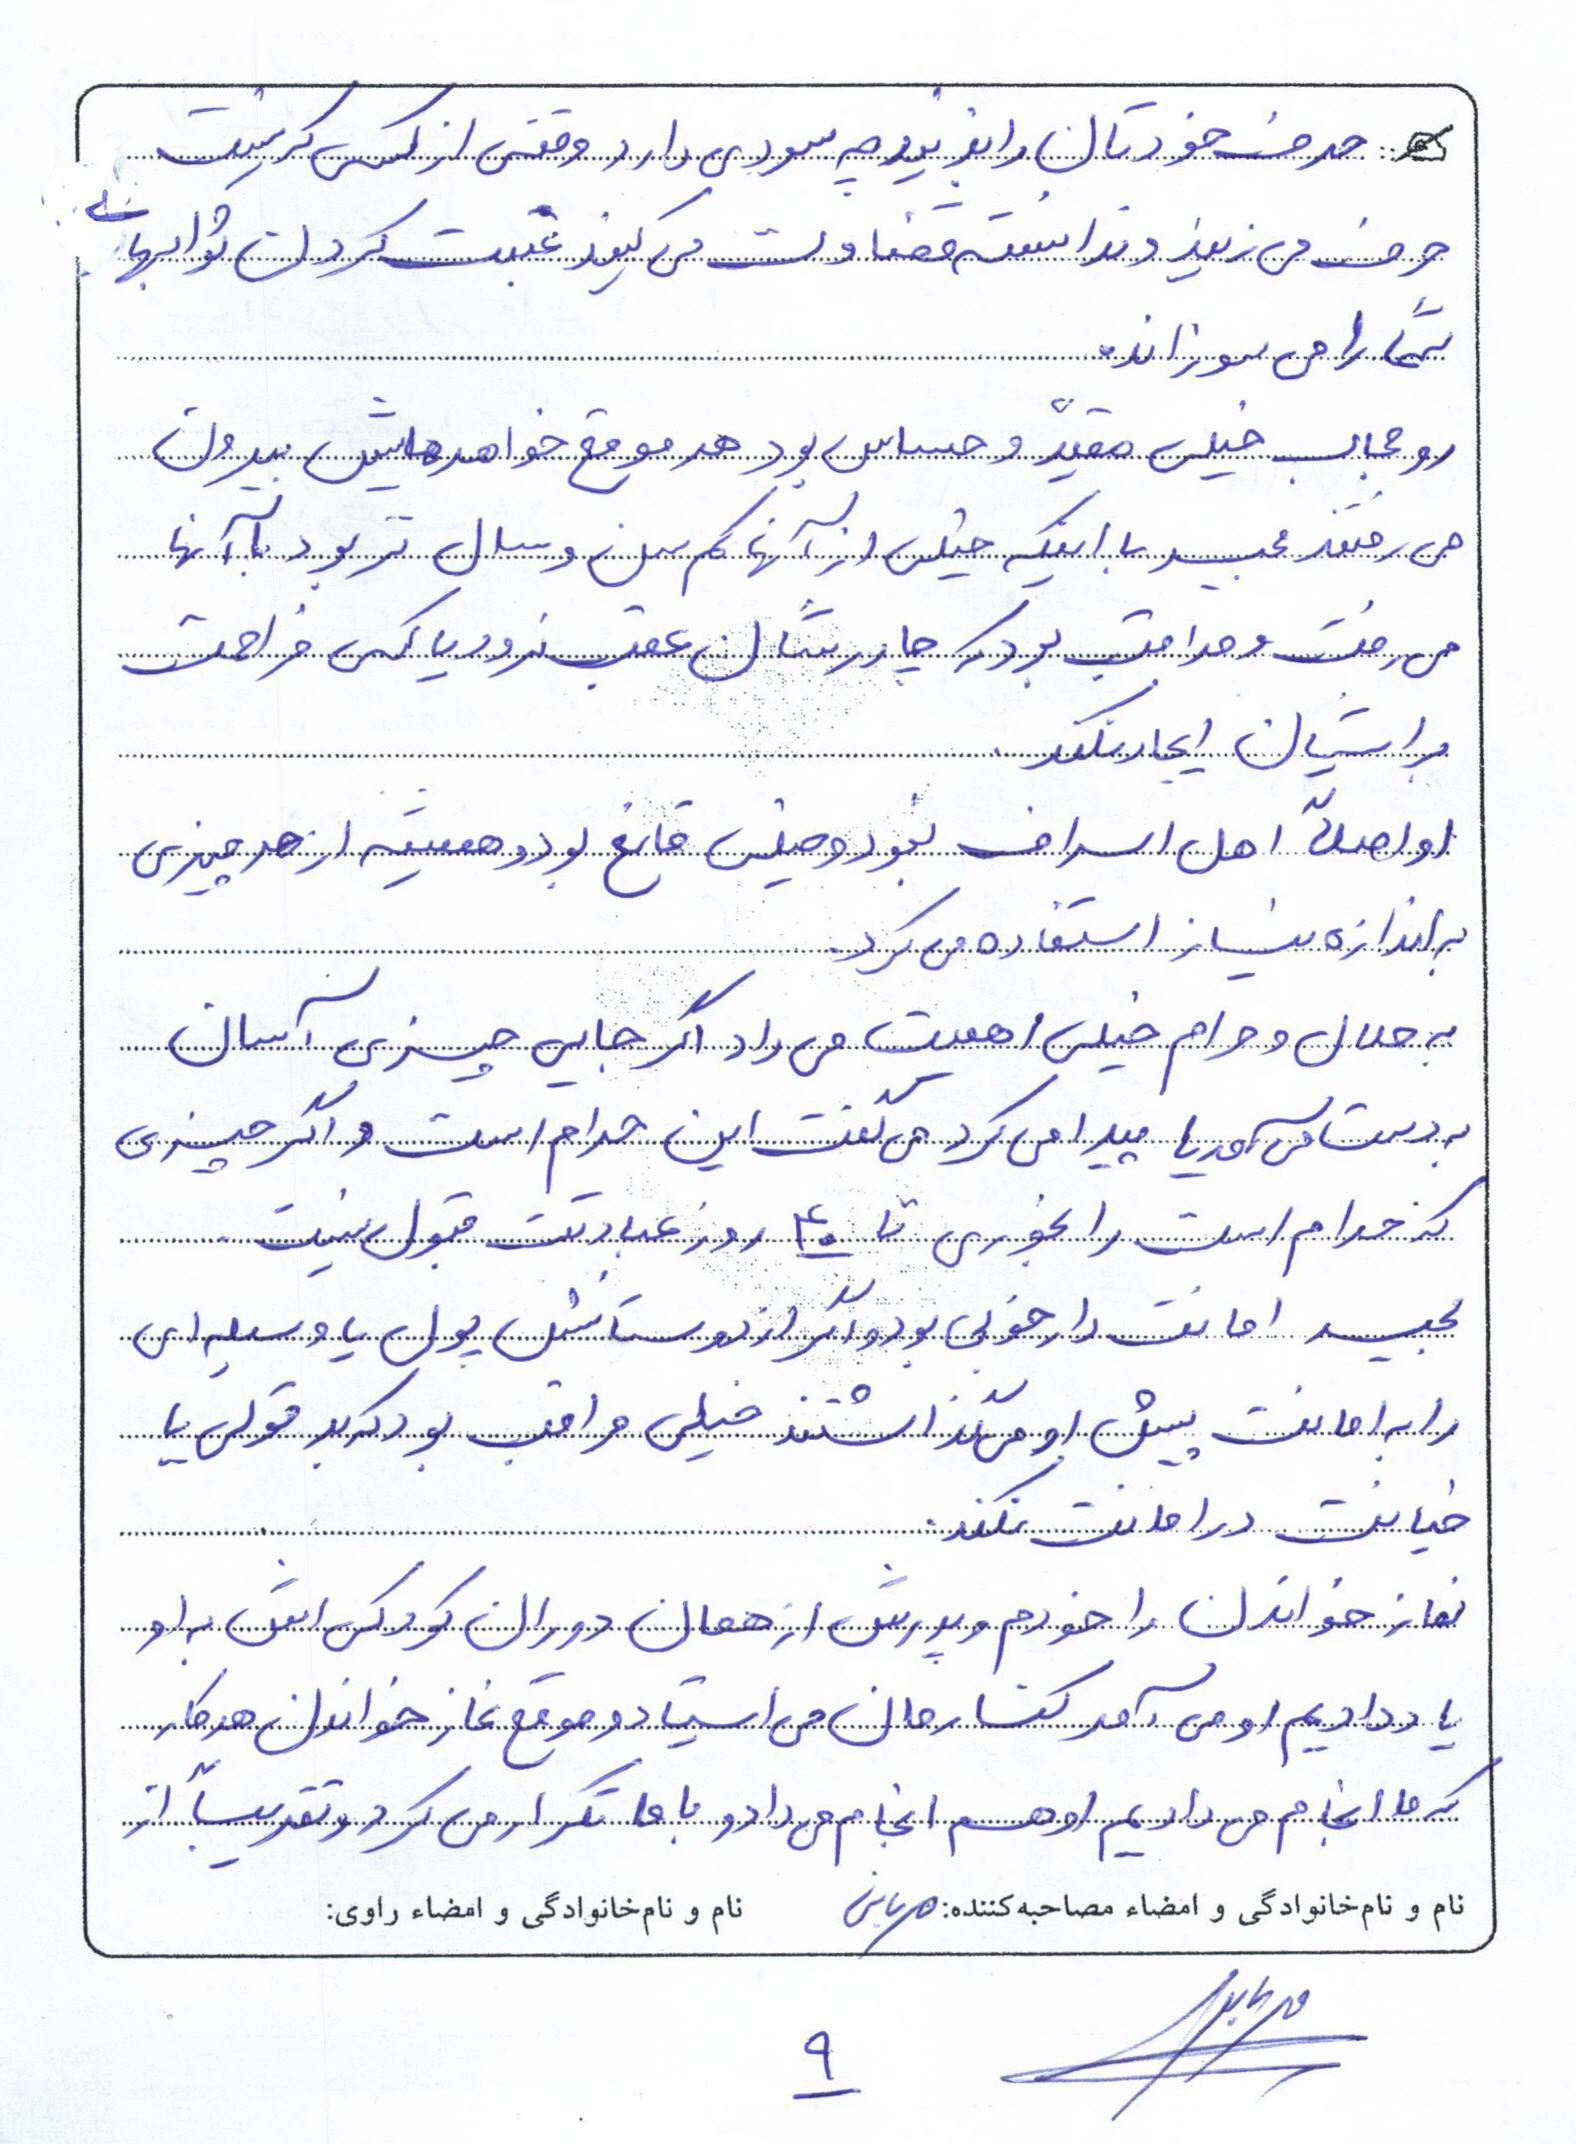 حرف خودتان را بزنید چه سودی دارد وقتی از کسی که نیست
حرف می زنید و ندانسته قضاوت می کنید غیبت کردن ثوابهای
شما را می سوزاند.
رو حجاب خیلی مقیّد و حساس بود هر موقع خواهرهایش بیرون
می رفتند مجید با اینکه خیلی از آنها کم سن و سال تر بود با آنها
می رفت و مراقب بود که چادرشان عقب نرود یا کسی مزاحمت
براشیان ایجاد نکند.
او اصلاً اهل اسراف نبود و خیلی قانع بود و همیشه از هر چیزی
به اندازه نیاز استفاده می کرد.
به حلال و حرام خیلی اهمیت می داد اگر جایی چیزی آسان
به دست می آمد یا پیدا می کرد می گفت این حرام است و اگر چیزی
که حرام است را بخوری تا ۴۰ روز عبادتت قبول نیست.
مجید امانت دار خوبی بود و اگر از دوستانش پول یا وسیله ای
را به امانت پیش او می گذاشتند خیلی مراقب بود که بد قولی یا
خیانت در امانت نکند.
نماز خواندن را خودم و پدرش از همان دوران کودکی اش به او
یاد دادیم او می آمد کنارمان می استیاد و موقع نماز خواندن هر کار
که ما انجام می دادیم او هم انجام می داد و با ما تکرار می کرد و تقریباً از
نام و نام‌خانوادگی و امضاء مصاحبه‌کننده: نام و نام‌خانوادگی و امضاء راوی:
۹